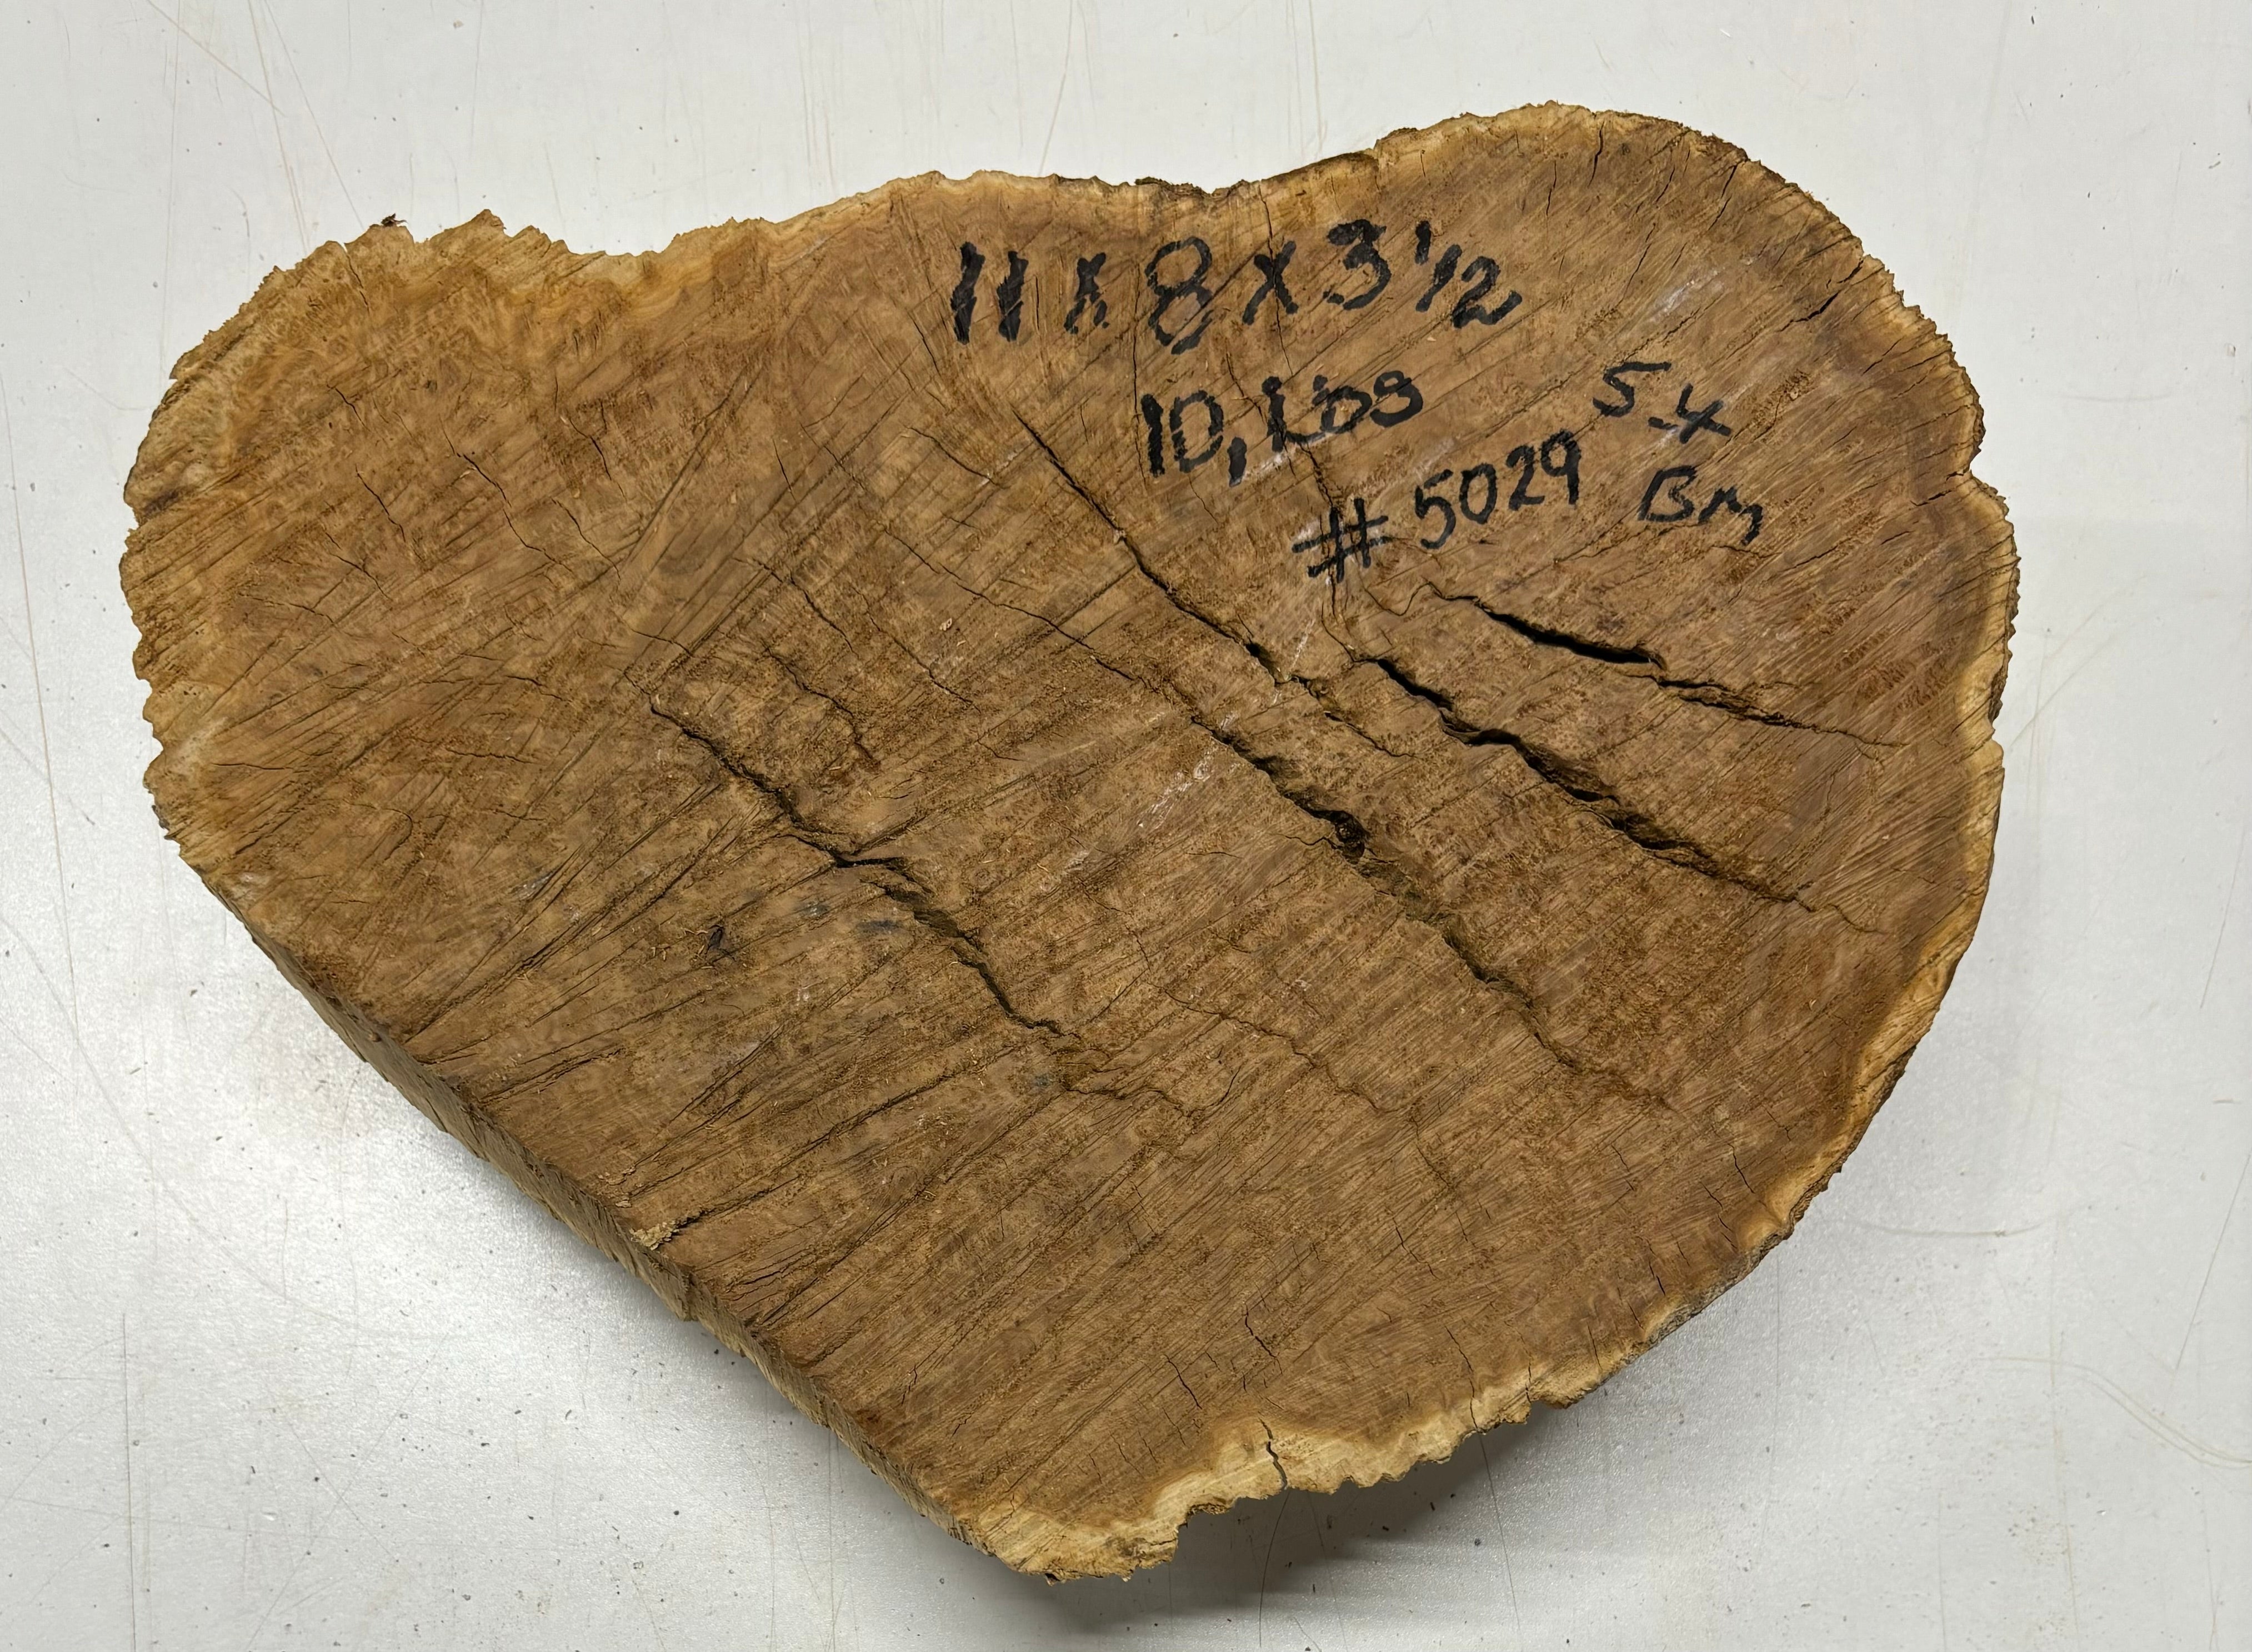 11 x 8 x 3 1/2
10, Lbs
5.4
#5029
Bm